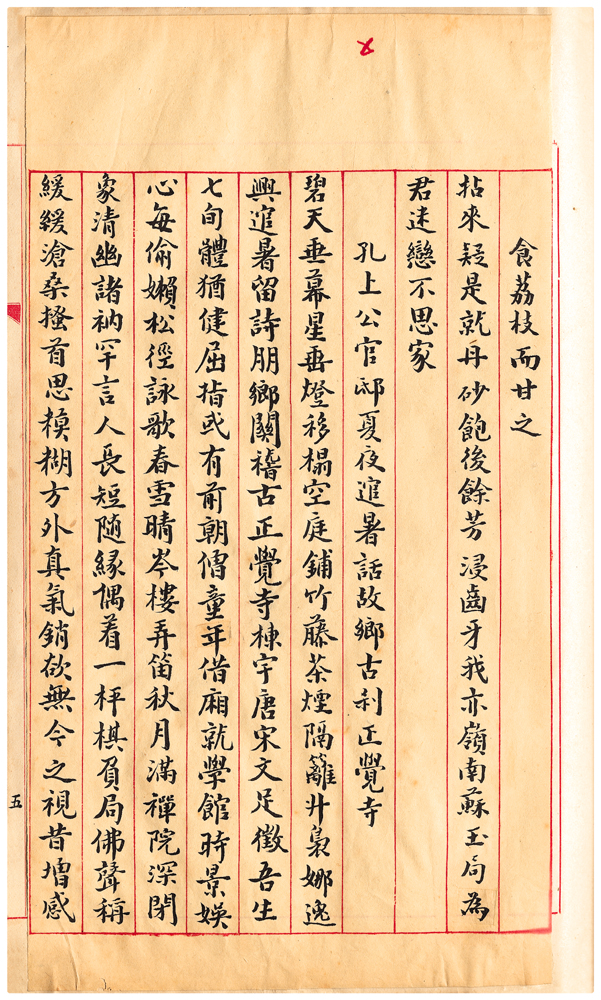 食荔枝而甘之
拈來疑是就丹砂飽後餘芳浸齒牙我亦嶺南蘇玉局為
君迷戀不思家
孔上公官邸夏夜追暑話故鄉古刹正覺寺
碧天垂幕星垂燈移榻空庭鋪竹藤茶煙隔籬升裊娜逸
興追暑留詩朋鄉關稽古正覺寺棟宇唐宋文足徵吾生
七旬體猶健屈指或有前朝僧童年借廂就學館時景媖
心每偷嬾松徑詠歌春雪晴岑樓弄笛秋月滿禪院深閉
象清幽諸衲罕言人長短隨緣偶着一枰棋負局佛聲稱
緩緩滄桑搔首思模糊方外真氣銷欲無今之視昔增感
五